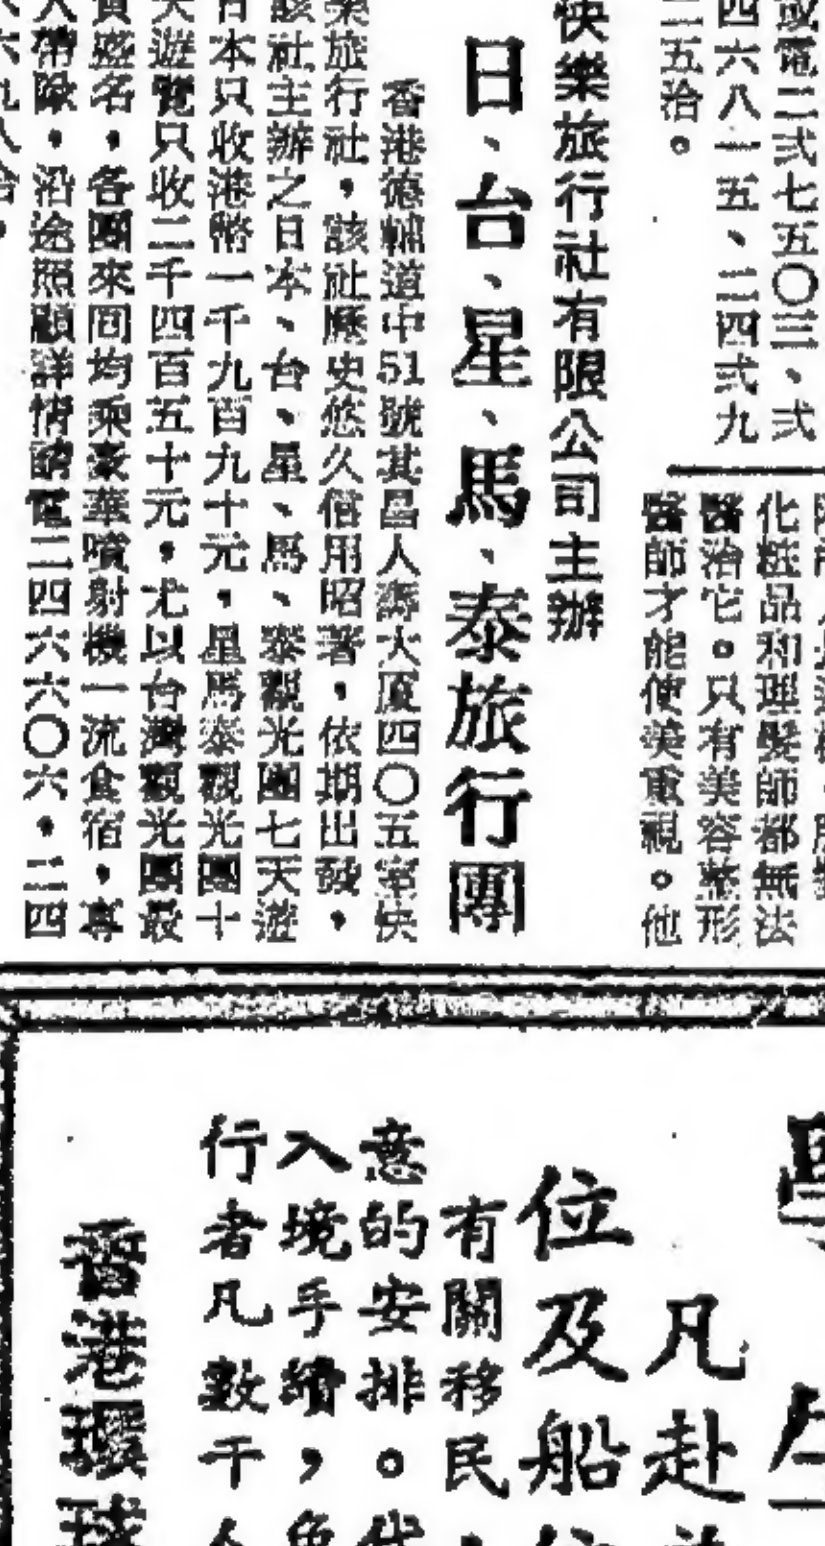 或電二弍七五〇三、弍
四六八一五、二四弍九
二五洽。
化粧品和理髮師都無法
醫治它。只有美容整形
醫師才能使美重視。他
快樂旅行社有限公司主辦
日、台、星、馬、泰旅行團
香港德輔道中51號其昌人壽大厦四〇五室快
樂旅行社，該社歷史悠久信用昭著，依期出發，
該社主辦之日本、台、星、馬、泰觀光團七天遊
日本只收港幣一千九百九十元，星馬泰觀光團十
天遊覽只收二千四百五十元，尤以台灣觀光團最
負盛名，各團來回均乘豪華噴射機一流食宿，專
人帶隊，沿途照顧詳情請電二四六六〇六，二四
六六九八洽，
學生
凡赴
位及船位
有關移民
意的安排。代
入境手續，免
行者凡數千人
香港環球